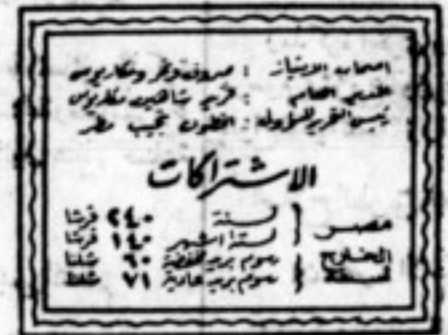 اصحاب الامتياز : صروف ونمر ومكاريوس
المدير العام : كريم شاهين مكاريوس
رئيس التحرير المسؤول : انطون نجيب مطر
الاشتراكات
مصر
لسنة ٢٤٠ قرشا
لستة اشهر ١٤٠ قرشا
الخارج لسنة
رسوم بريد مخفضة ٦٠ شلنا
رسوم بريد عادية ٧١ شلنا